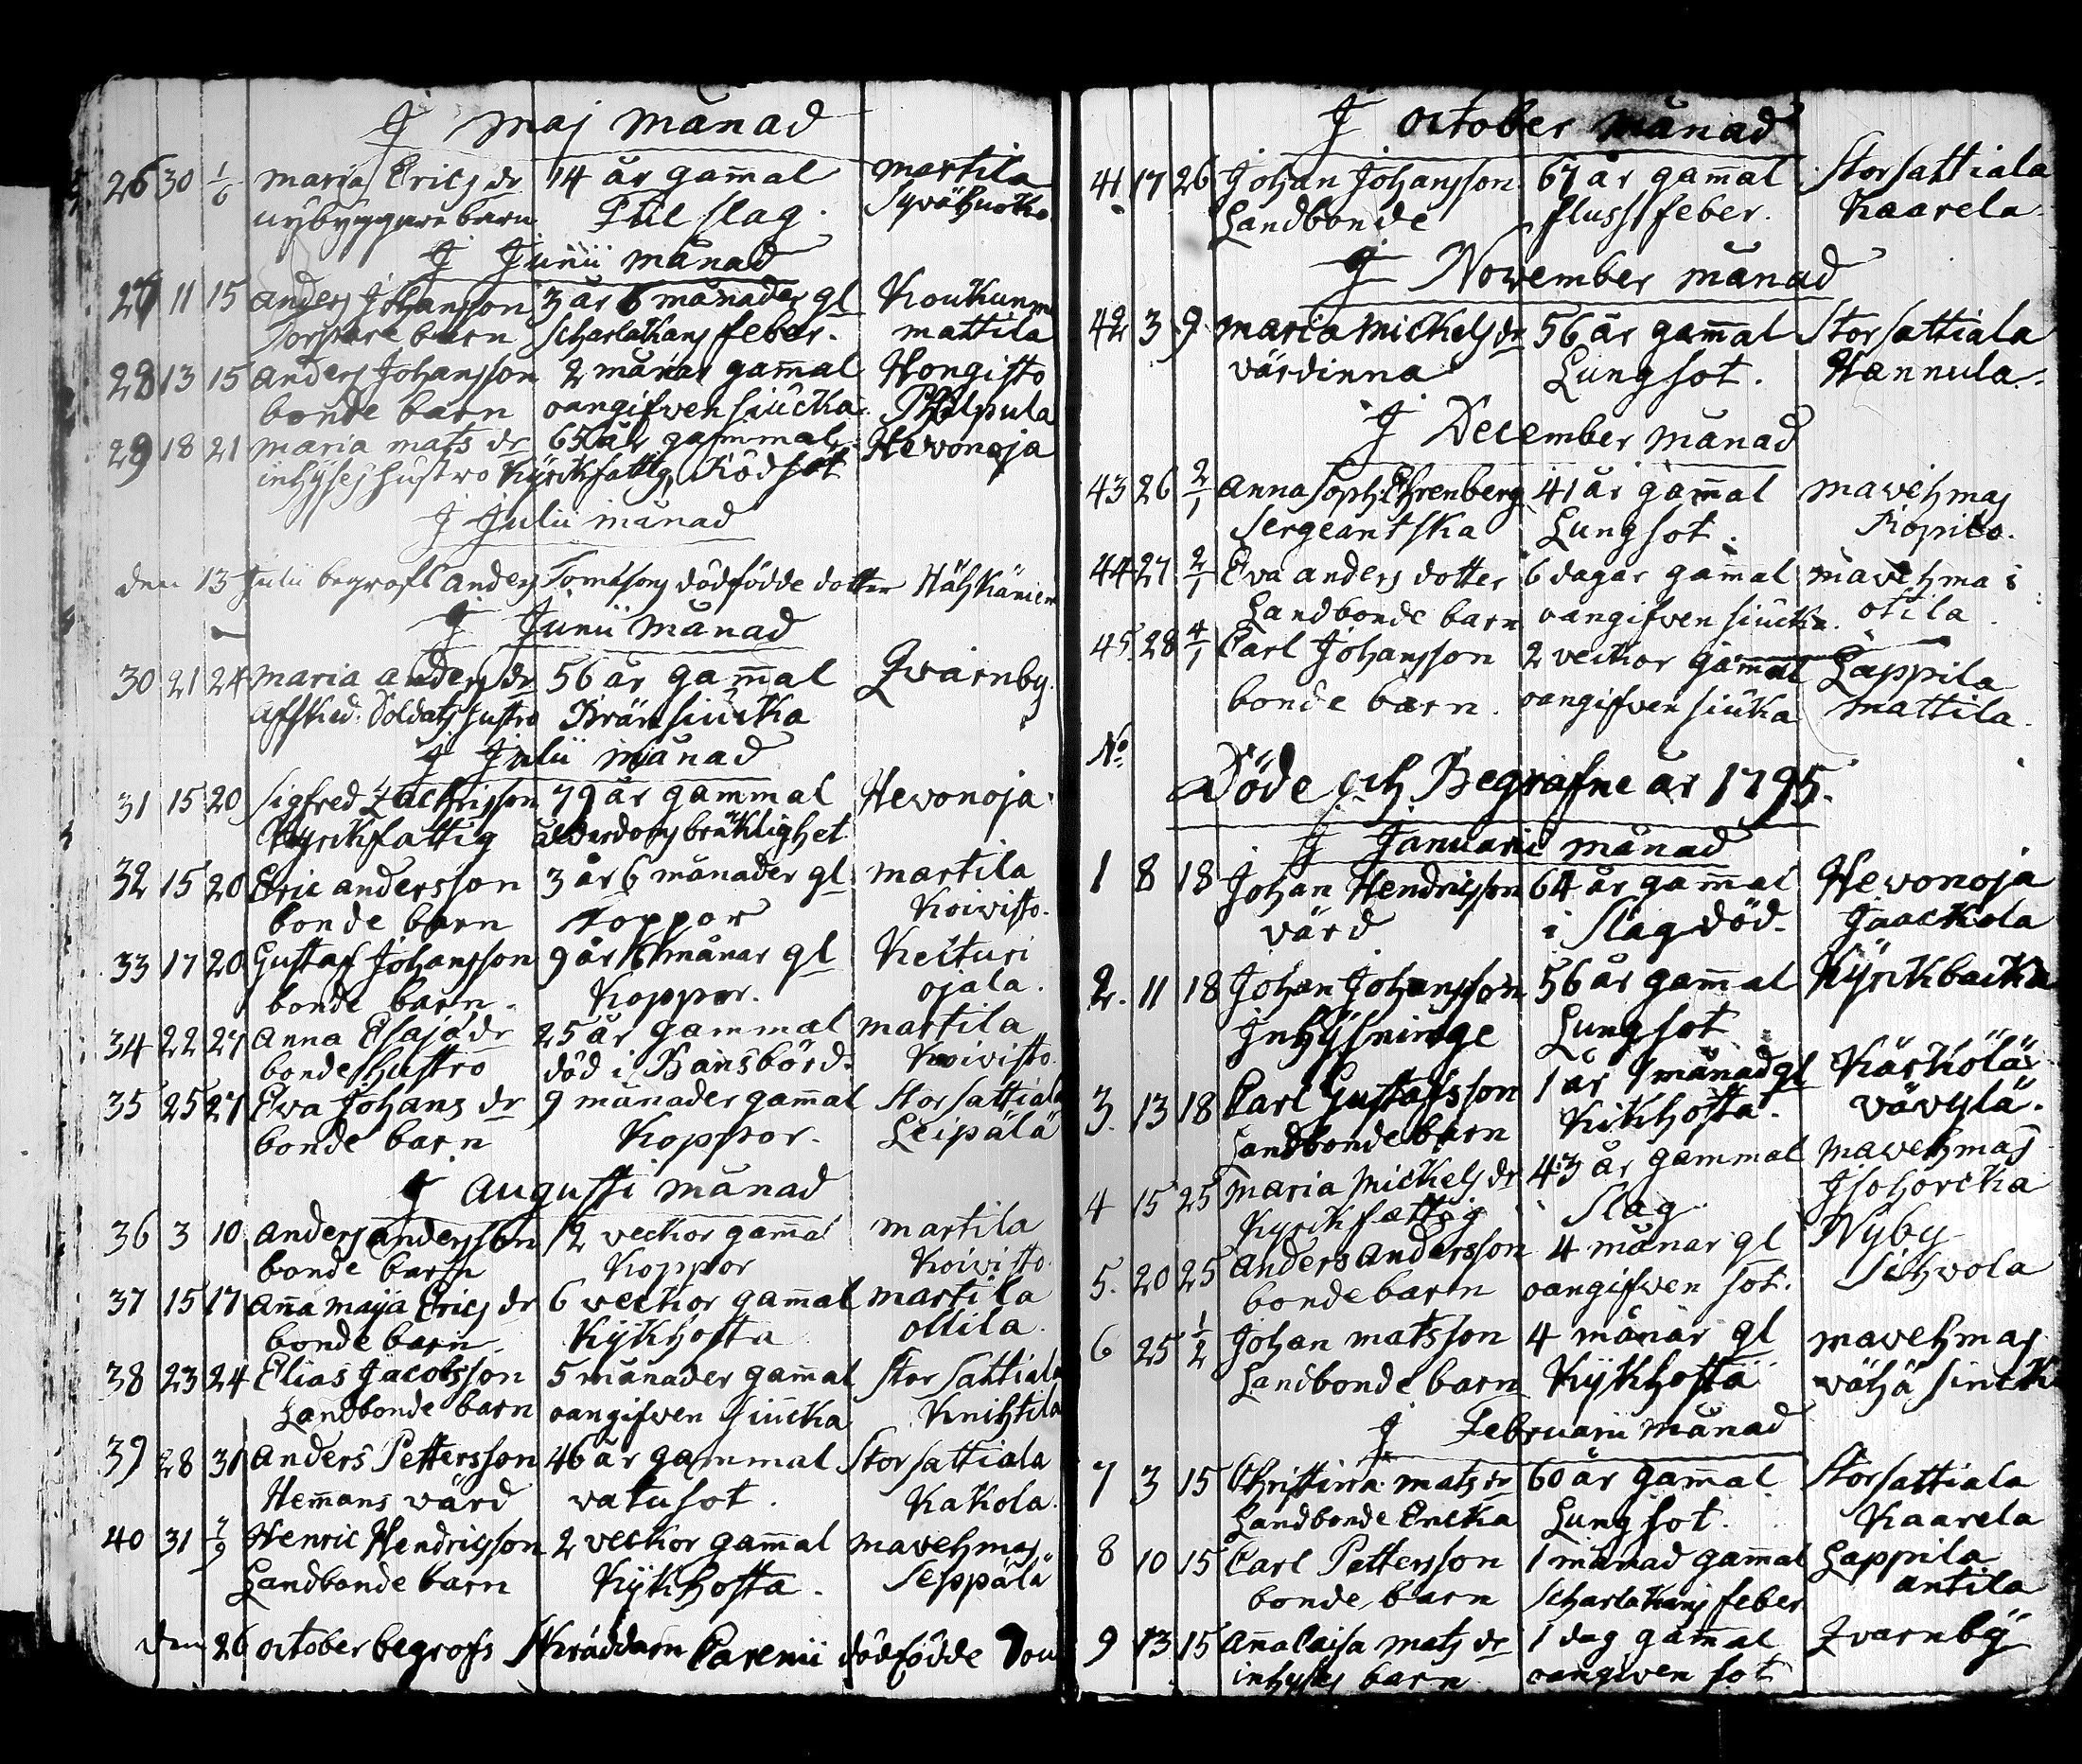 J Maj månad
26 30 1/6 Maria Ericsdr 14 år gam̄al Martila
nybyggare barn slag.
J Junii månad
27 11 15 Anders Johansson 3 år 6 månader gl Koukunm
Torpare barn Scharlakans feber. Mattila
28 13 15 Anders Johansson 2 månar gam̄al Hongisto
bonde barn oangifwen siucka
29 18 21 Maria Mats dr 65 år gammal Hewonoja
inhyses hustro Kyrkfattig Rödsot
J Julii månad
den 13 Julii begrofs Anders Tomassons dödfödde dotter
J Junii månad
30 21 24 Maria Anders dr 56 år gam̄al Qwarnby.
Afsked. Soldats hustro siucka
J Julii månad
31 15 20 Sigfred Zachrisson 79 år gammal Hewonoja.
Kyrkfattig ålderdoms bräklighet
32 15 20 Eric Andersson 3 år 6 månader gl Martila
bonde barn Koppor Koivisto.
33 17 20 Gustaf Johansson 9 år 6 månar gl Keituri
bonde barn. Koppor. Ojala.
34 22 27 Anna Esaja dr 25 år gammal Martila
bonde hustro död i Bansbörd. Koivisto.
35 25 27 Ewa Johans dr 9 månader gam̄al Stor Sattiala
bonde barn Koppor. Leipälä
J Augusti månad
36 3 10 Anders Andersson 12 veckor gam̄al Martila
bonde barn Koppor Koivisto.
37 15 17 An̄a Maija Erics dr 6 veckor gam̄al Martila
bonde barn. Kykhosta Ollila.
38 23 24 Elias Jacobsson 5 månader gam̄al Stor Sattiala
Landbonde barn oangifwen siucka Knihtila
39 28 31 Anders Pettersson 46 år gammal Stor Sattiala
Hem̄ans värd vatusot. Kakola.
40 31 7/9 Henric Hendricsson 2 veckor gam̄al Mavehmas
Landbonde barn Kykhosta. Seppälä
den 26 October begrofs Skräddarn dödfödde
J October månad
41 17 26 Johan Johansson 67 år gam̄al Stor Sattiala
Landbonde flussfeber. Kaarela
J November månad
42 3 9 Maria Mickels dr 56 år gam̄al Stor Sattiala
värdinna Lungsot. Hannula.
J December månad
43 26 2/1 Anna Soph: Ehrenberg 41 år gam̄al Mavehmas
Sergeantska Lungsot.
44 27 2/1 Eva Anders dotter 6 dagar gam̄al Mavehmas
Landbonde barn oangifwen siucka. Otila
45. 28 4/1 Carl Johansson 2 veckor gam̄al Lappila
bonde barn. oangifwen siuka Mattila.
No.
Döde och Begrafne år 1795.
J Januarii månad
1 8 18 Johan Hendricsson 64 år gam̄al Hewonoja
värd i Slag död. Jaackola
2. 11 18 Johan Johansson 56 år gam̄al Kyrkbacka
Inhysninge Lungsot
3. 13 18 Carl Gustafsson 1 år 1 månad gl Kärkölä
Landbonde barn Kikhosta.
4 15 25 Maria Mickels dr 43 år gammal Mavehmas
Kyrkfattig Slag
5. 20 25 Anders Andersson 4 månar gl Nyby
bonde barn oangifwen sot. Sihvola
6 25 1/2 Johan Matsson 4 månar gl Mavehmas
Landbonde barn Kykhosta
J Februarii månad
7 3 15 Christina Mats dr 60 år gam̄al Stor Sattiala
Landbonde Encka Lungsot. Kaarela
8 10 15 Carl Pettersson 1 månad gam̄al Lappila
bonde barn Scharlakans feber Antila
9 13 15 An̄a Caisa Mats dr 1 dag gam̄al Qvarnby
inhyses barn oangiven sot